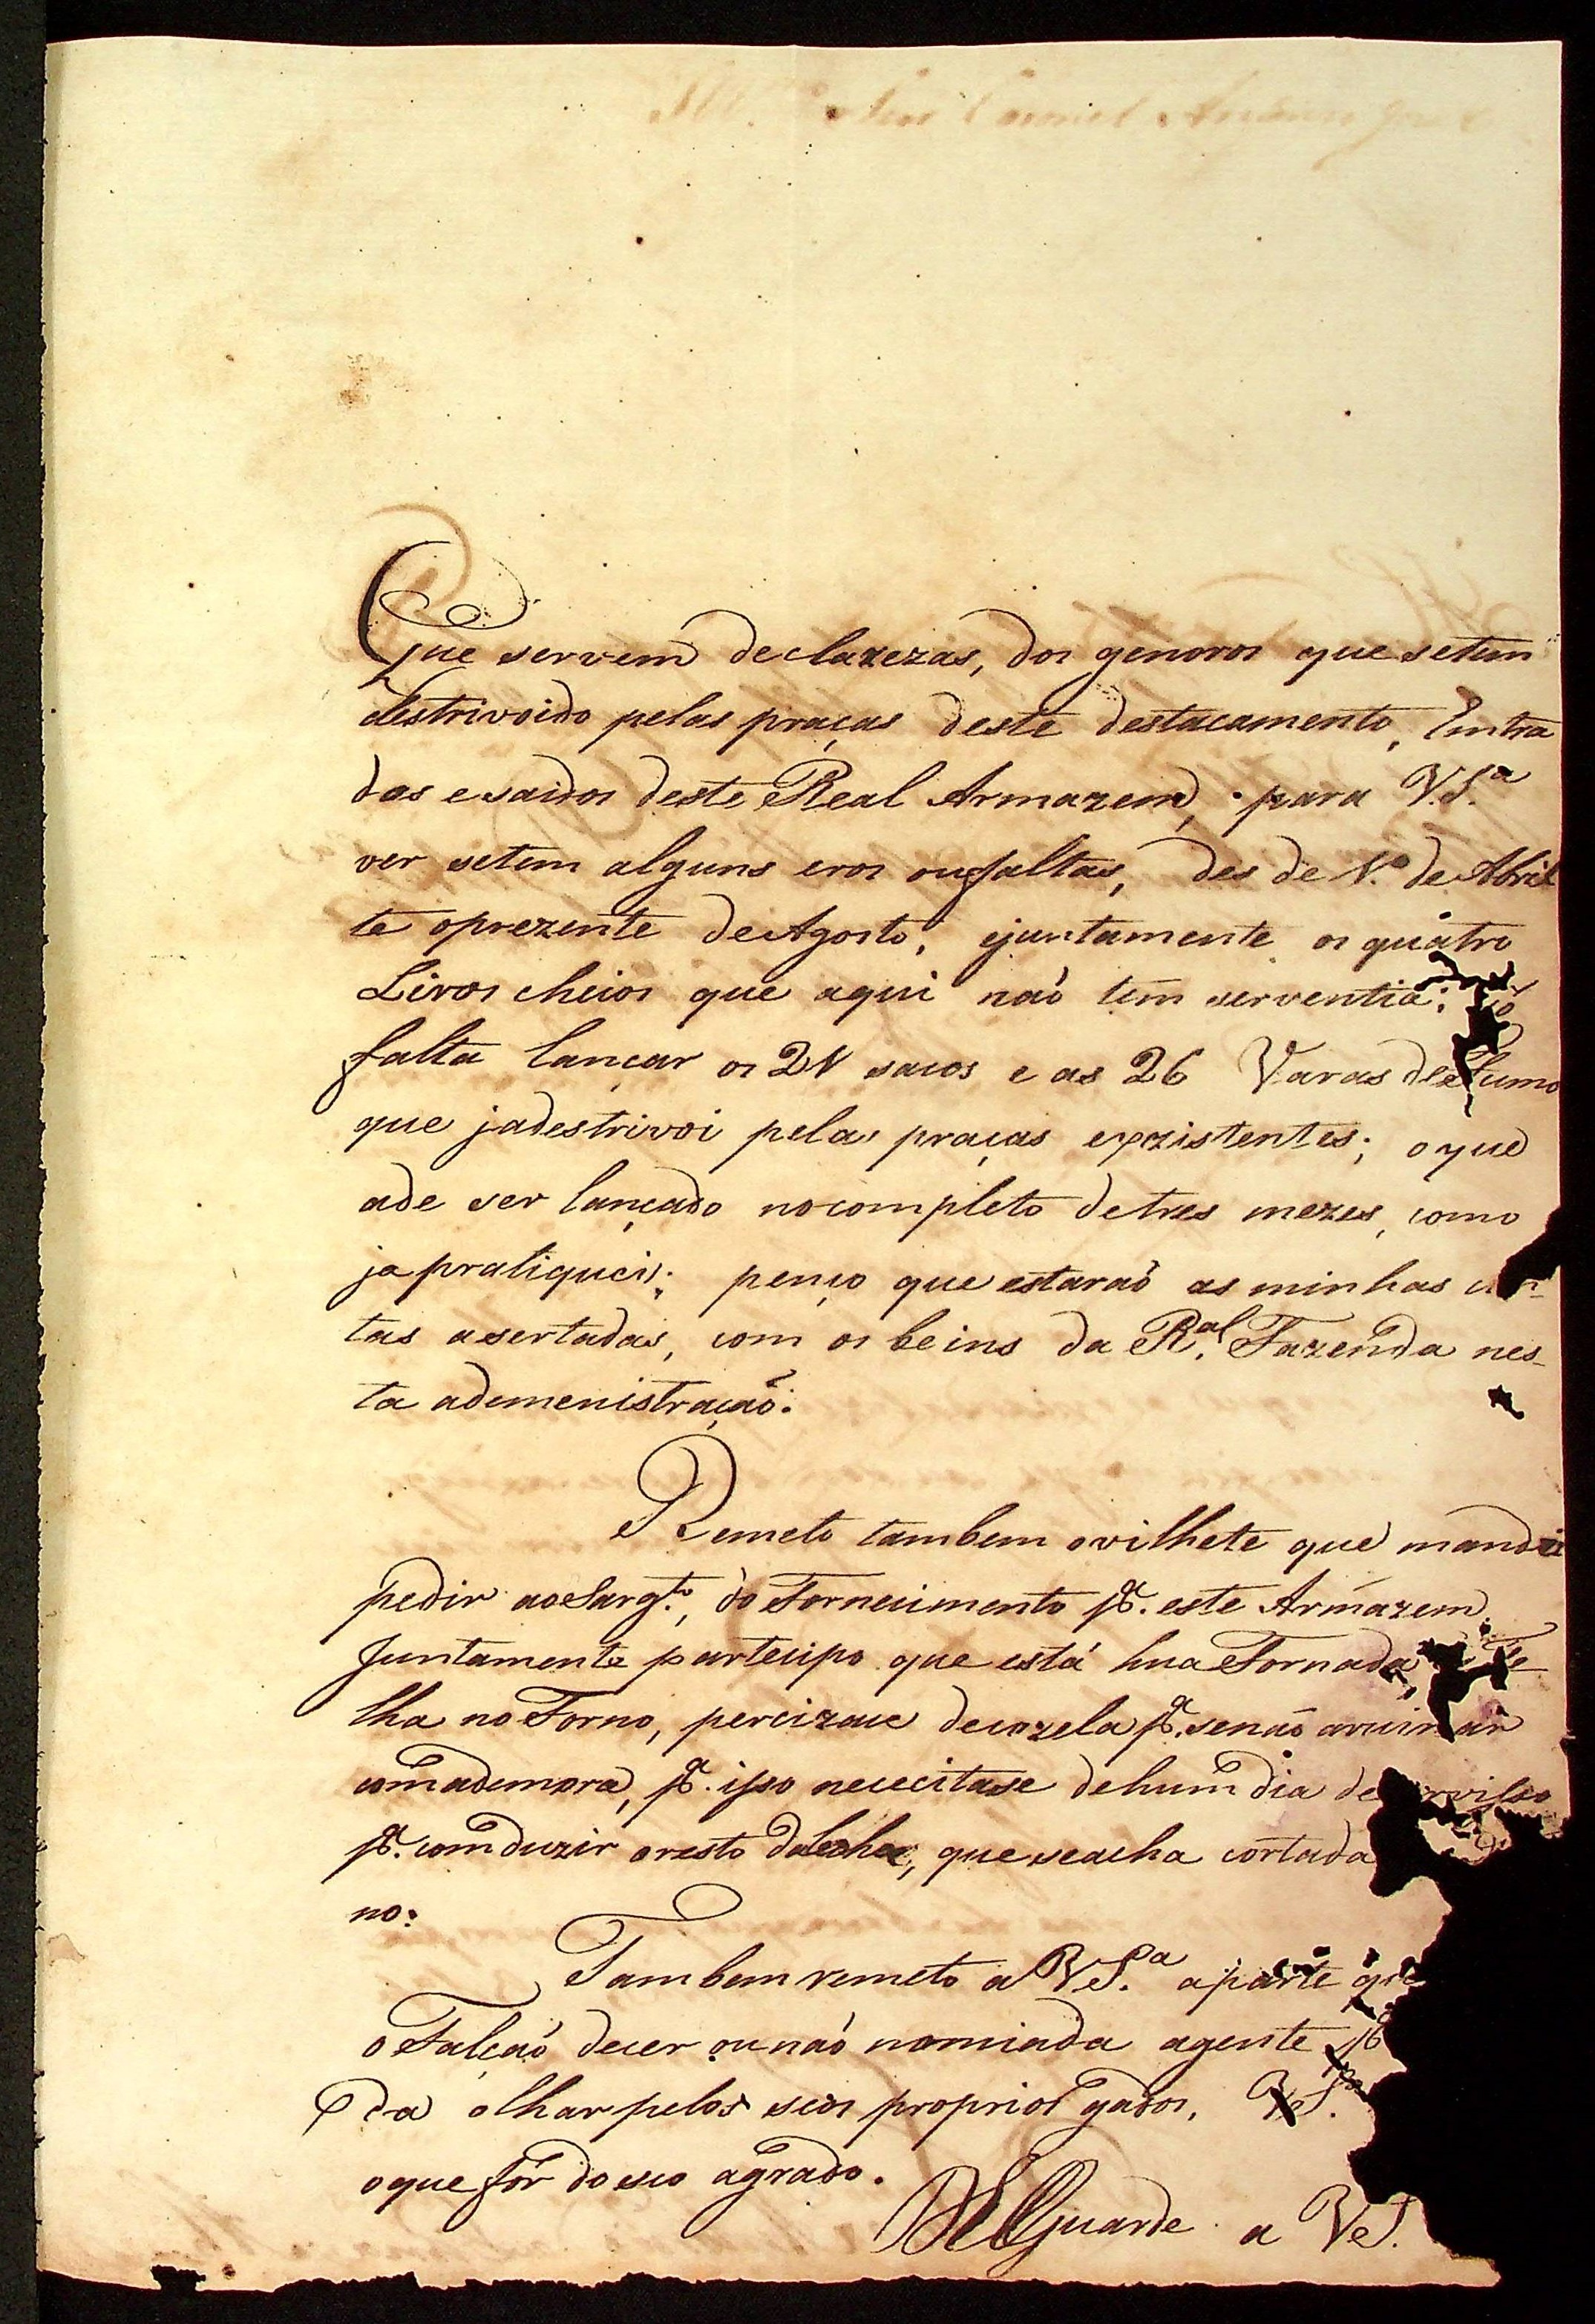 Que servem de clarezas, dos generos que setem
destrivoido pelas praças deste destacamento, Entra
das esaidos deste Real Armazem, para V.S.ª
ver setem alguns eros oufaltas, des de 1.º de Abril
te oprezente deAgosto, ejuntamente os quatro
Livros cheios que aqui naõ tem serventia; só
falta lançar os 21 sacos e as 26 Varas defumo
que jadestrivoi pelas praças expzistentes; oque
ade ser lançado nocompleto detres mezes, como
ja pratiquei; penço que estaraõ as minhas
tas asertadas, com os beins da R.al Fazenda nes-
ta ademenistraçaõ.
Remeto tambem ovilhete que mandei
pedir aoSarg.to, do Fornecimento pª. este Armazem.
Juntamente partecipo que está huaFornada Te
lha noForno, percizace decozela pª. senaõ aruinar
comademora, pª. isso nececitase dehum dia de
pª. comduzir oresto daLenha, queseacha cortada
no.
Tambem remeto a VS.ª aparte que
oFalcaõ decer ounaõ nomiada agente pª
da olharpelos seos proprios gados, VS.ª
oque fôr doseo agrado.
DEGuarde a VS.